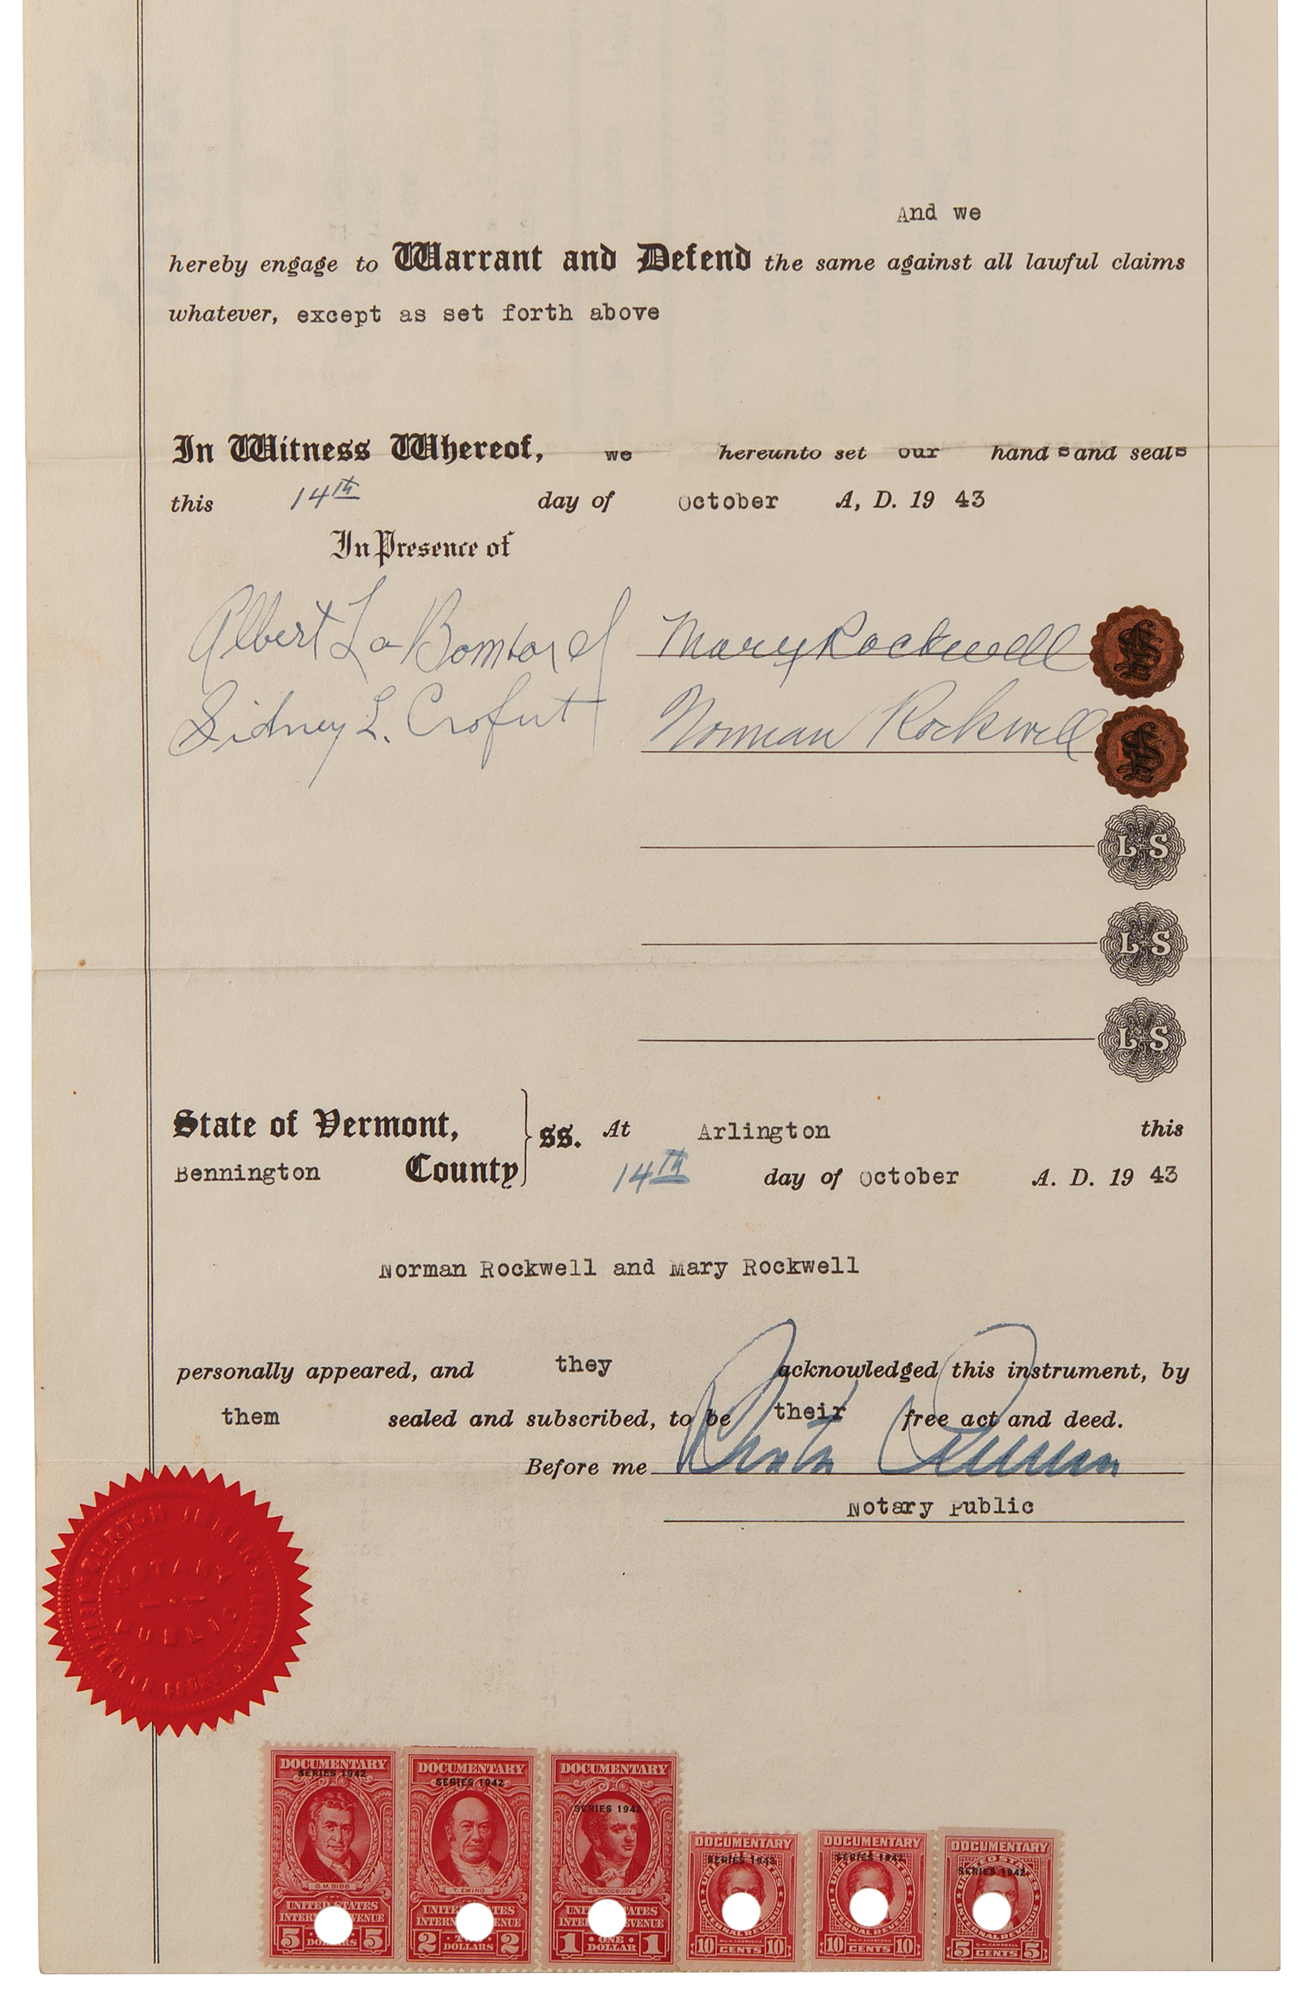 And we
hereby engage to Warrant and Defend the same against all lawful claims
whatever, except as set forth above
In Witness Whereof, we hereunto set our hand s and seal s
this 14th day of October A, D. 19 43
In Presence of
Albert La Bombard Mary Rockwell
Sidney L. Crofut Norman Rockwell
L S
L S
L S
State of Vermont, ss. At Arlington this
Bennington County 14TH day of October A. D. 19 43
Norman Rockwell and Mary Rockwell
personally appeared, and they acknowledged this instrument, by
them sealed and subscribed, to be their free act and deed.
Before me
Notary Public
NOTARY
PUBLIC
DOCUMENTARY DOCUMENTARY DOCUMENTARY
SERIES 1942 SERIES 1942 SERIES 1942
DOCUMENTARY DOCUMENTARY DOCUMENTARY
SERIES 1942 SERIES 1942
G. M. BIBB T. EWING L. WOODBURY
UNITED STATES UNITED STATES UNITED STATES
5 5 2 DOLLARS 2 1 ONE DOLLAR 1
10 CENTS 10 10 CENTS 10 5 CENTS 5